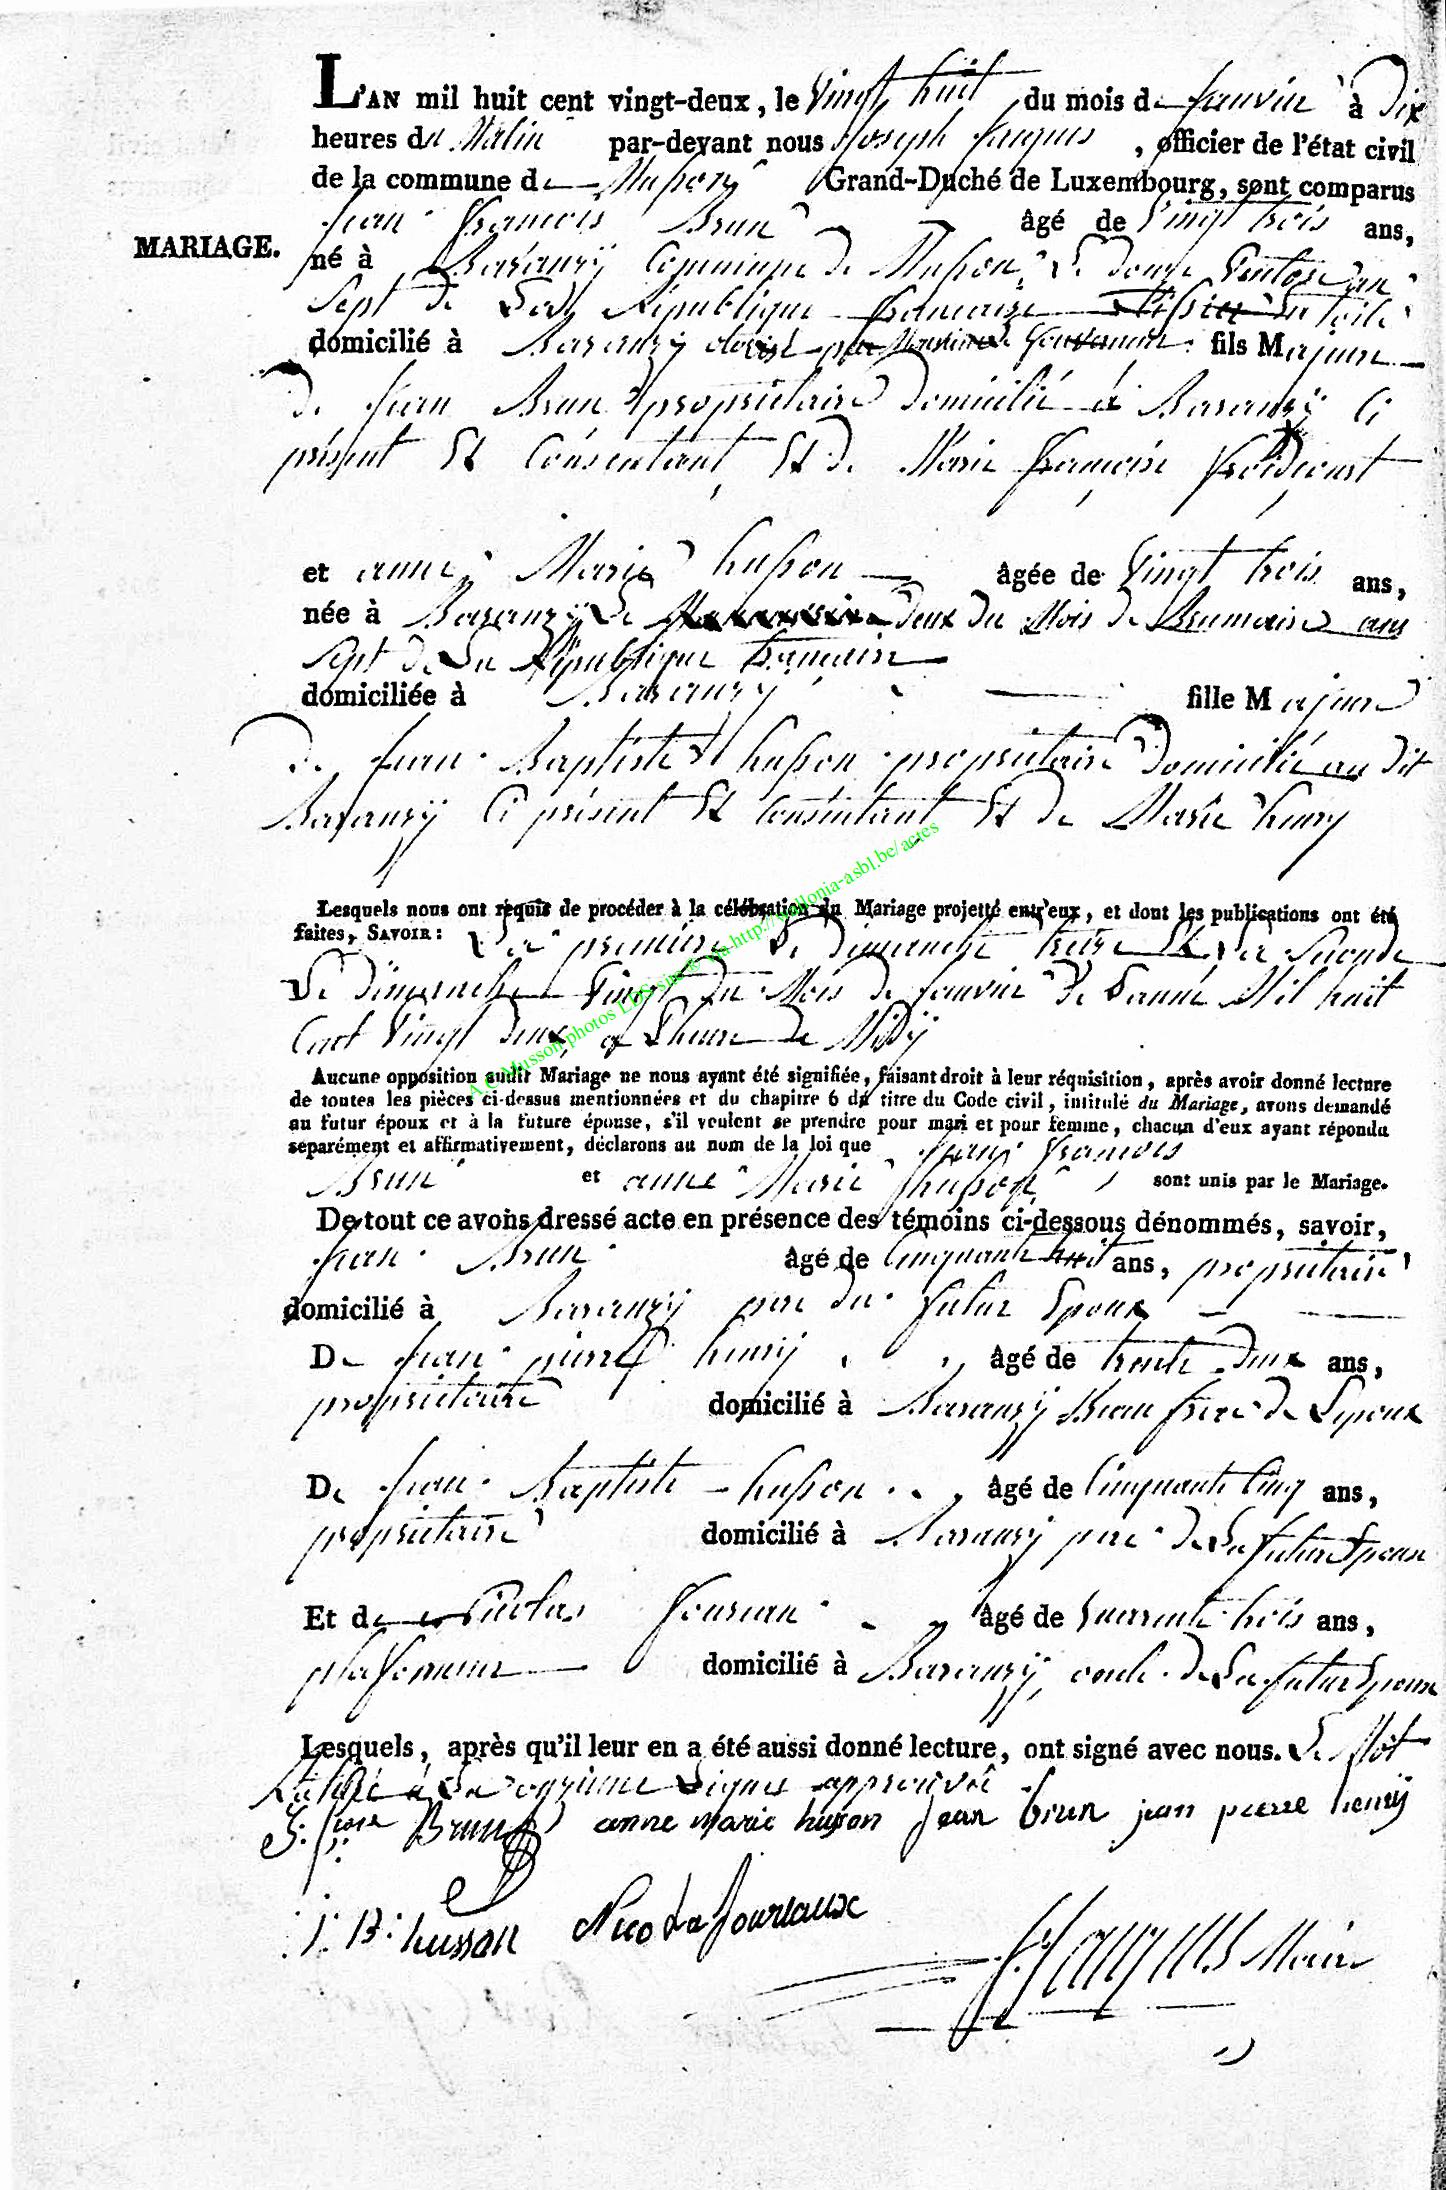 L'AN mil huit cent vingt-deux, le Vingt huit du mois de Janvier à Dix
heures du Matin par-devant nous Joseph Jacques, officier de l'état civil
de la commune de Musson Grand-Duché de Luxembourg, sont comparus
Jean François Brun âgé de Vingt trois ans,
MARIAGE.
né à Baranzÿ Commune de Musson, Le douze Ventose an
Sept de La République francaise
domicilié à Baranzy fils Majeur
de Jean Brun propriétaire domicilié à Baranzÿ Ci
présent Et Consentant, Et de Marie françoise froidcourt
et anne Marie husson âgée de Vingt trois ans,
née à Baranzÿ Le deux du Mois de Brumaire an
Sept de La République francaise
domiciliée à Baranzy fille Majeure
de Jean Baptiste husson propriétaire Domicilié au dit
Baranzÿ Ci présent Et Consentant Et de Marie henry
Lesquels nous ont requis de procéder à la célébration du Mariage projetté entr'eux, et dont les publications ont été
faites, SAVOIR : La premiere Le Dimanche treize Et La Seconde
Le Dimanche Vingt Du Mois de Janvier De L'année Mil huit
Cent Vingt deux, a L'heure de Midÿ
Aucune opposition audit Mariage ne nous ayant été signifiée, faisant droit à leur réquisition, après avoir donné lecture
de toutes les pièces ci-dessus mentionnées et du chapitre 6 du titre du Code civil, intitulé du Mariage, avons demandé
au futur époux et à la future épouse, s'il veulent se prendre pour mari et pour femme, chacun d'eux ayant répondu
séparément et affirmativement, déclarons au nom de la loi que Jean François
Brun et anne Marie husson sont unis par le Mariage.
De tout ce avons dressé acte en présence des témoins ci-dessous dénommés, savoir,
Jean Brun âgé de Cinquante huit ans, propriétaire
domicilié à Baranzy pere du futur Epoux
De Jean pierre henry âgé de trente Deux ans,
propriétaire domicilié à Baranzÿ Beau frere de L'époux
De Jean Baptiste husson âgé de Cinquante Cinq ans,
propriétaire domicilié à Baranzÿ pere de La future Epouse
Et de Nicolas Jouriau âgé de quarente trois ans,
plafonneur domicilié à Baranzÿ, oncle de La future Epouse
Lesquels, après qu'il leur en a été aussi donné lecture, ont signé avec nous. Le Mot
à La onzieme Ligne approuvée
Brun anne Marie husson Jean brun jean pierre henrÿ
J: B: husson Nicola Jouriaux
Jacques Maire
A.C. Musson photos LDS via http://wallonia-asbl.be/actes